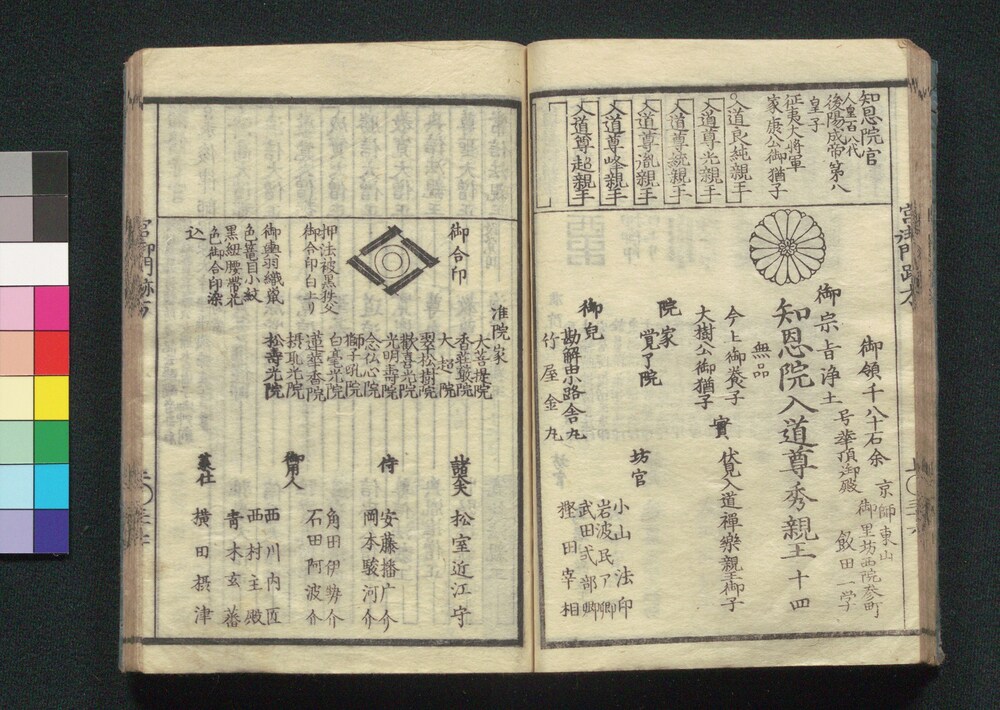 知恩院宮
人皇百八代
後陽成帝第八
皇子
征夷大将軍
家康公御猶子
入道良純親王
入道尊光親王
入道尊統親王
入道尊胤親王
入道尊峰親王
入道尊超親王
御領千八十石余
京師東山
御里坊西院参町
御宗旨浄土
号華頂御殿
無品
知恩院入道尊秀親王
十四
今上御養子
大樹公御猶子
實
伏見入道禅樂親王御子
院家
覚了院
坊官
小山法印
岩波民ア卿
武田式部卿
樫田宰相
御児
勘解由小路舎丸
竹屋金丸
御合印
准院家
大菩提院
香荘厳院
大超院
翠松樹院
歓喜光院
光明壽院
念仏心院
獅子吼院
白毫光院
蓮華香院
摂取光院
松壽光院
押法被黒秩父
御合印白上り
黒紐腰帯花
色御合印染
込
諸大夫
松室近江守
侍
安藤播广介
岡本駿河介
角田伊勢介
石田阿波介
御用人
西川内匠
西村主殿
青木玄蕃
横田摂津